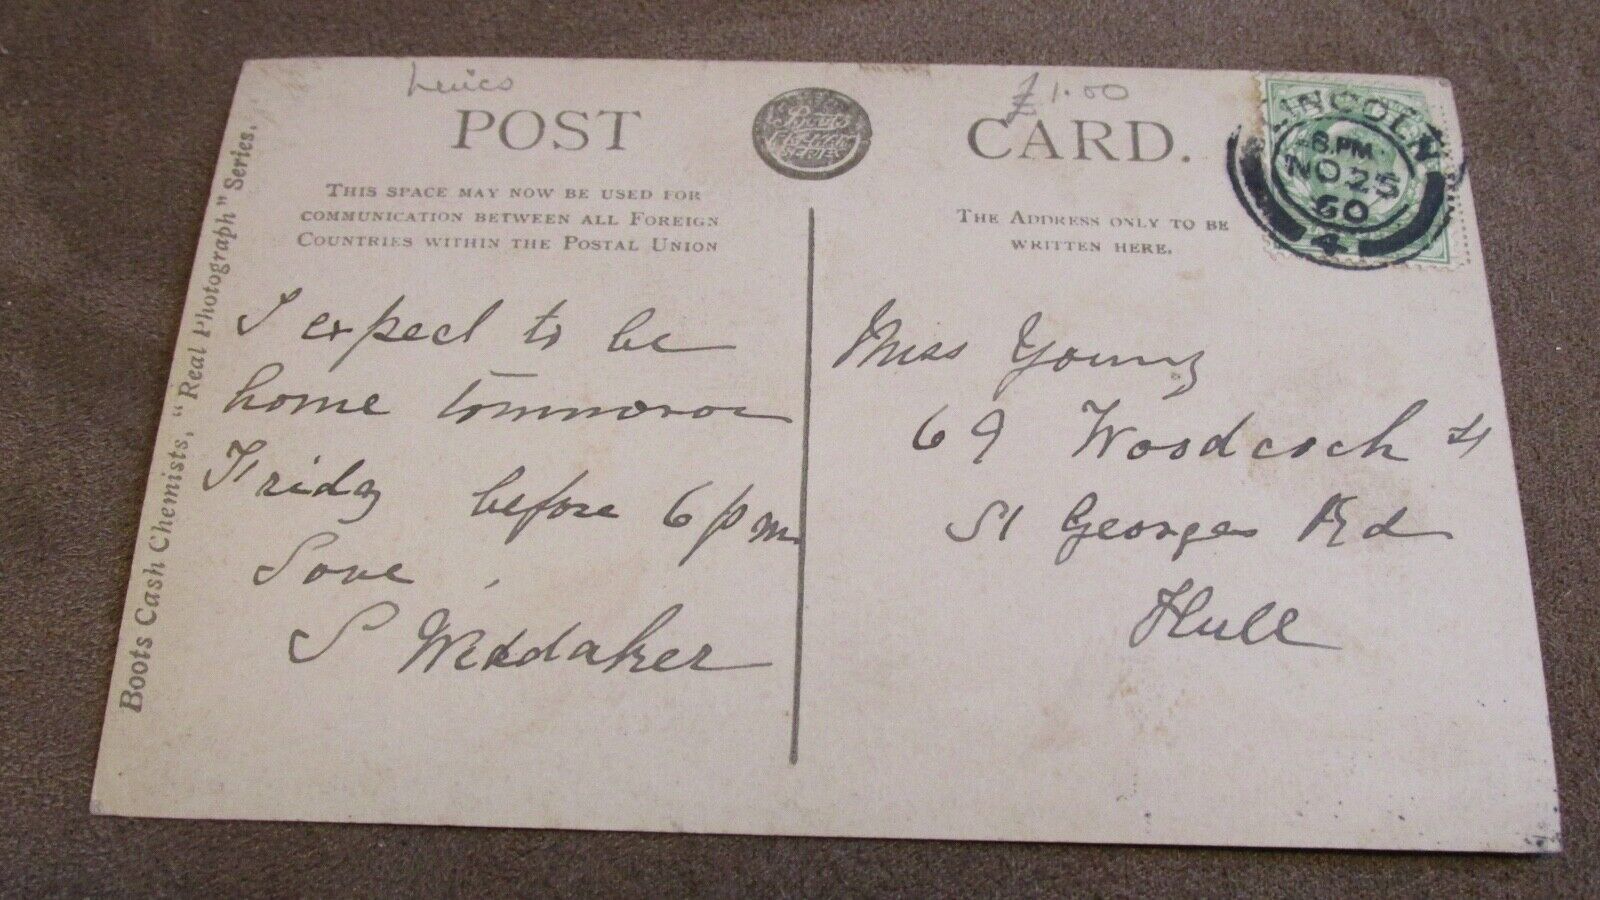 Leics
£1.00
POST CARD.
THIS SPACE MAY NOW BE USED FOR
COMMUNICATION BETWEEN ALL FOREIGN
COUNTRIES WITHIN THE POSTAL UNION
THE ADDRESS ONLY TO BE
WRITTEN HERE.
LINCOLN
8.PM
NO 25
4
Boots Cash Chemists, "Real Photograph" Series.
I expect to be
home tommorow
Friday before 6 pm.
Love,
S
Miss Young
69 Woodcock St
St Georges Rd
Hull